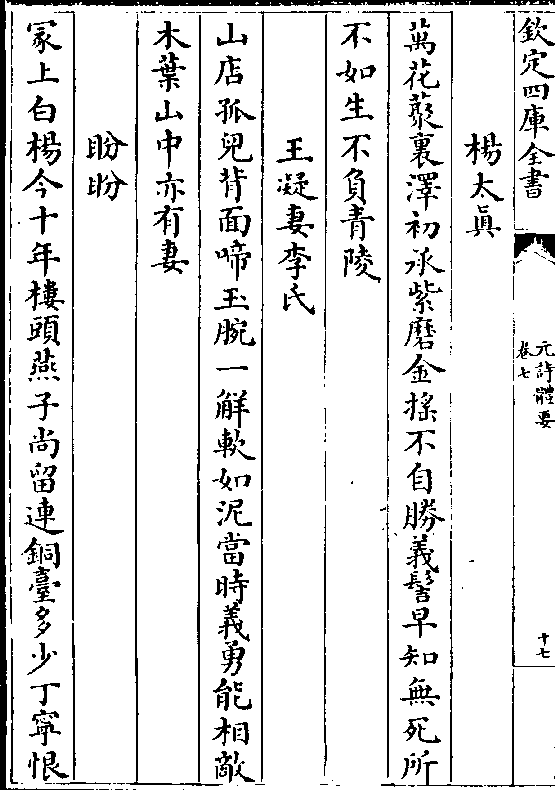 欽定四庫全書
元詩體要
卷七
十七
楊太眞
萬花叢裏澤初承紫磨金搖不自勝義髻早知無死所
不如生不負青陵
王凝妻李氏
山店孤兒背面啼玉腕一解軟如泥當時義勇能相敵
木葉山中亦有妻
盼盼
冢上白楊今十年樓頭燕子尚留連銅臺多少丁寧恨